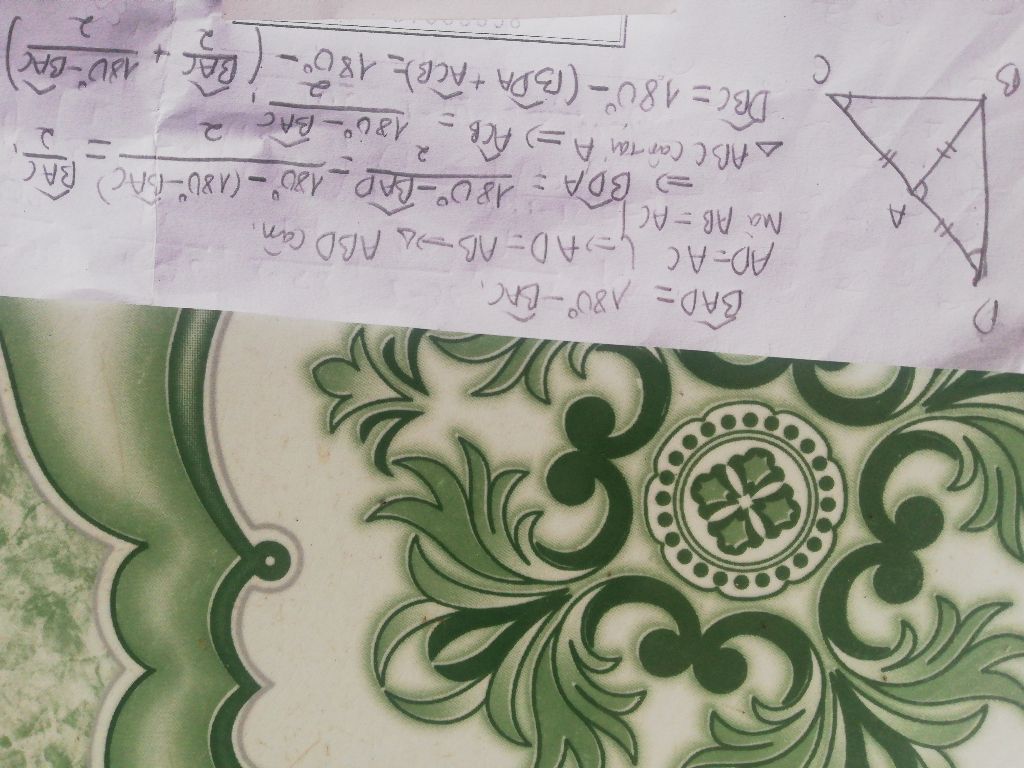 D
A
B
C
B̂AD = 180° - B̂AC,
AD = AC
Mà AB = AC } => AD = AB -> △ ABD cân.
=> B̂DA = (180° - B̂AD)/2 = (180° - (180° - B̂AC))/2 = B̂AC/2,
△ ABC cân tại A => ÂCB = (180° - B̂AC)/2,
D̂BC = 180° - (B̂DA + ÂCB) = 180° - (B̂AC/2 + (180° - B̂AC)/2)